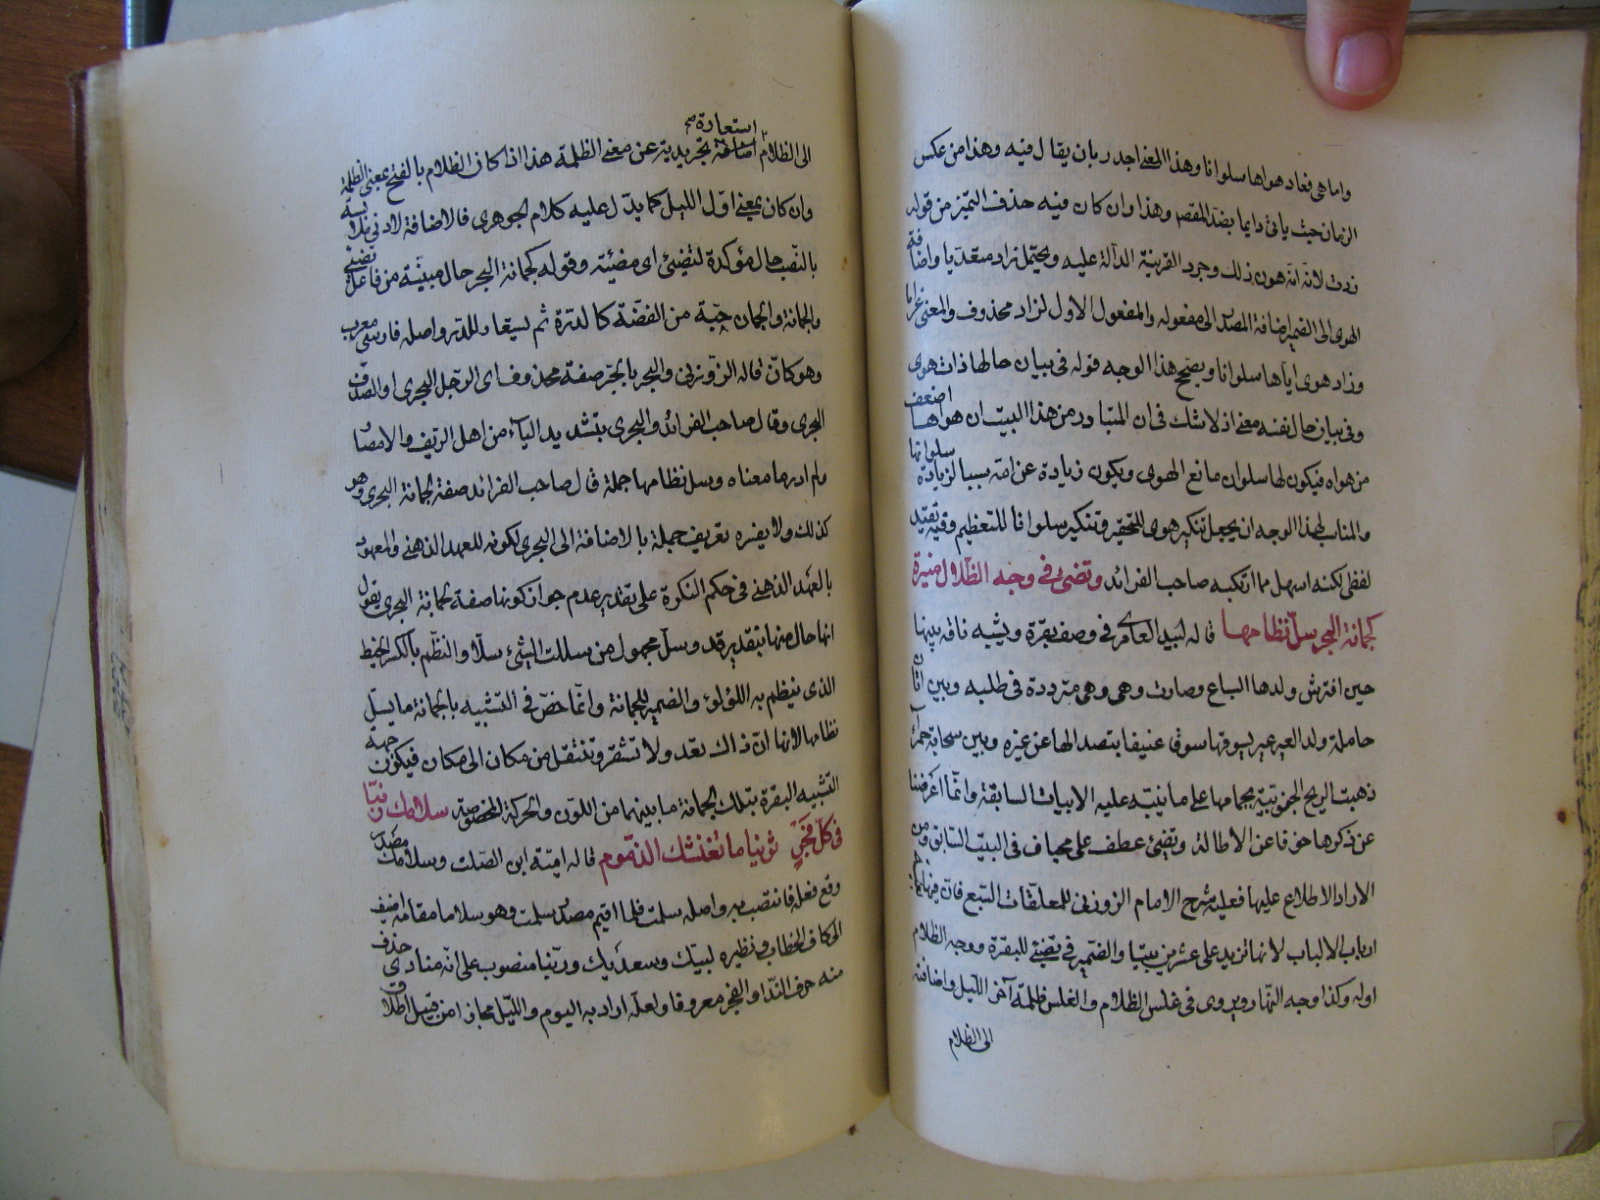 واما هى فعاد هواها سلوانا وهذا المعنى اجدر بان يقال فيه وهذا من عكس
الزمان حيث ياتى دايما بضد المقصد وهذا وان كان فيه حذف التميز من قوله
زدت لانه انه هون ذلك وجود القرينة الدالة عليه ويحتمل زاد متعديا واضافة
الهوى الى الضمير اضافة المصدر الى مفعوله والمفعول الاول لزاد محذوف والمعنى غراما
وزاد هوى اياها سلوانا ويصحح هذا الوجه قوله فى بيان حالها ذات هوى
وفى بيان حال نفسه معنى اذ لا شك فى ان المتبادر من هذا البيت ان هواها اضعف
من هواه فيكون لها سلوان مانع الهوى ويكون زيادة عن امه سببا لزيادة سلوانها
والمناسب لهذا الوجه ان يجعل تنكير هوى للتحقير وتنكير سلوانا للتعظيم وفيه تعقيد
لفظى لكنه اسهل مما ارتكبه صاحب الفرائد وتضىء فى وجه الظلام منيرة
كجمانة البحرى سل نظامها قاله لبيد العامرى فى وصف بقرة ويشبه ناقه بينها
حين افترش ولدها السباع وصارت وهى وهى مترددة فى طلبه وبين اتان
حاملة ولد العير عير يسوقها سوقا عنيفا يتصد الها عن غيره وبين سحابة حمراء
ذهبت الريح الجنوبية بجهامها على ما ينبه عليه الابيات السابقة وانما اعرضنا
عن ذكرها خوفا عن الاطالة وتضىء عطف على محباف فى البيت السابق ومن
اراد الاطلاع عليها فعليه شرح الامام الزوزنى للمعلقات السبع فان فيها
ارباب الالباب لانها تزيد على عشرين بيتا والضمير فى تضىء للبقرة ووجه الظلام
اوله وكذا وجه النهار ويروى فى غلس الظلام والغلس ظلمة آخر الليل واضافته
الى الظلام
استعارة صح
الى الظلام اضافة تجريدية عن معنى الظلمة هذا اذا كان الظلام بالفتح بمعنى الظلمة
وان كان بمعنى اول الليل كما يدل عليه كلام الجوهرى فالاضافة لادنى ملابسة
بالنصب حال مؤكدة لتضىء اى مضيئة وقوله كجمانة البحر حال مبينة من فاعل تضىء
والجمانة والجمان حبة من الفضة كالدرة ثم يستعار للدر واصله فارسى معرب
وهو كان قاله الزوزنى والبحر بالجر صفة محذوف اى الرجل البحرى او الصدف
البحرى وقال صاحب الفرائد والبحرى بتشديد الياء من اهل الريف والامصار
ولم ادر ما معناه وسل نظامها جملة قال صاحب الفرائد صفة لجمانة البحرى وهو
كذلك ولا يضره تعريف جملة بالاضافة الى البحرى لكونه للعهد الذهنى والمعهود
بالعهد الذهنى فى حكم النكرة على تقدير عدم جواز كونها صفة لجمانة البحرى يقول
انها حال منها بتقدير قد وسل مجهول من سللت الشىء سلا والنظم بالكسر الخيط
الذى ينظم به اللؤلؤ والضمير للجمانة وانما خص فى التشبيه بالجمانة ما يسل
نظامها لانها ان ذاك تعد ولا تستقر وتنتقل من مكان الى مكان فيكون جهة
التشبيه البقرة بتلك الجمانة ما بينهما من اللون والحركة المخصوصة سلامك ربنا
فى كل فجر ثوبنا ما تغنثك الذموم قاله امية ابن الصلت وسلامك مصدر
وقع فعله فانتصب به واصله سلمت فلما اقيم مصدر سلمت وهو سلاما مقامه اضيف
الى كاف الخطاب ونظيره لبيك وسعديك وربنا منصوب على انه منادى حذف
منه حرف الندا والفجر معروف ولعله اراد به اليوم والليل مجازا من قبيل اطلاق